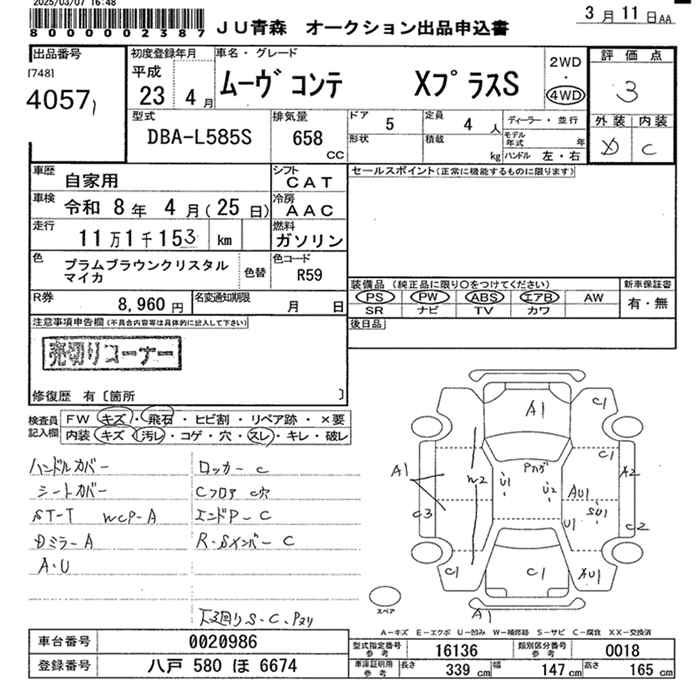 2025/03/07 16:48
80000002387
JU青森 オークション出品申込書
3月11日AA
出品番号
[748]
4057
初度登録年月
平成
23 4月
車名・グレード
ムーヴ コンテ XプラスS
2WD
・
4WD
評価点
3
外装 内装
D C
型式
DBA-L585S
排気量
658
CC
ドア 5
形状
定員 4 人
積載 kg
ディーラー・並行
モデル年式 年
ハンドル 左・右
車歴
自家用
シフト
CAT
車検
令和 8年 4月(25日)
冷房
AAC
走行
11万1千153 km
燃料
ガソリン
色
プラムブラウンクリスタル
マイカ
色替
色コード
R59
セールスポイント(正常に機能するものに限ります)
装備品(純正品に限り○をつけてください)
PS PW ABS エアB AW
SR ナビ TV カワ
新車保証書
有・無
R券
8,960円
名変通知期限
月 日
後日品
注意事項申告欄(不具合内容等は具体的に記入して下さい)
売切りコーナー
修復歴 有[箇所 ]
検査員記入欄
FW キズ・飛石・ヒビ割・リペア跡・×要
内装 キズ・汚レ・コゲ・穴・スレ・キレ・破レ
ハンドルカバー
シートカバー
ST-T WCP-A
Dミラー A
A・U
ロッカー C
Cフロア C穴
エンドP-C
R・Sメンバー C
下廻りS・C・Pスリ
A1
C1
A1
W2
C3
C1
U1
U2
AU1
SU1
U1
C1
A2
C2
C1
AU1
A1
スペア
A-キズ E-エクボ U-凹み W-補修跡 S-サビ C-腐食 XX-交換済
車台番号 0020986
登録番号 八戸 580 ほ 6674
型式指定番号 参考 16136
類別区分番号 参考 0018
車庫証明用 参考 長さ 339cm 幅 147cm 高さ 165cm